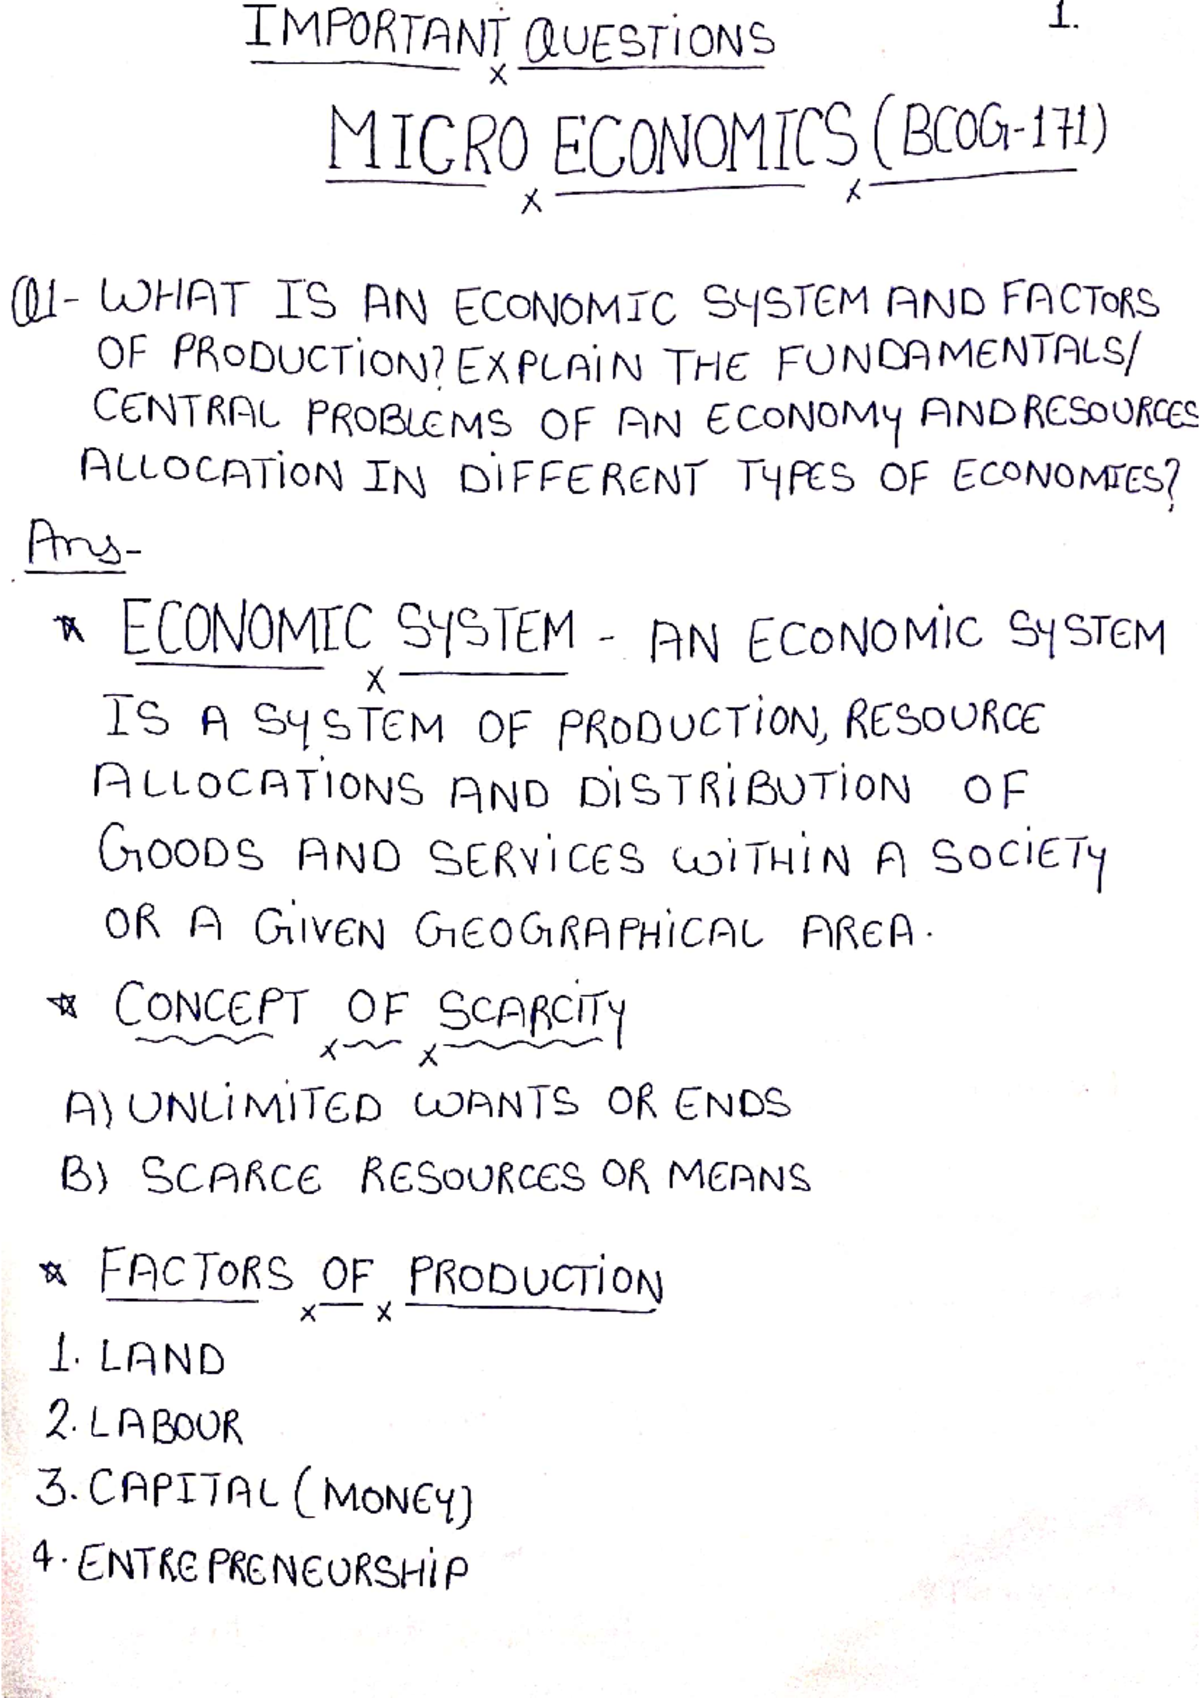 IMPORTANT QUESTIONS 1.
MICRO ECONOMICS (BCOG-171)
Q1- WHAT IS AN ECONOMIC SYSTEM AND FACTORS
OF PRODUCTION? EXPLAIN THE FUNDAMENTALS/
CENTRAL PROBLEMS OF AN ECONOMY AND RESOURCES
ALLOCATION IN DIFFERENT TYPES OF ECONOMIES?
Ans-
☆ ECONOMIC SYSTEM - AN ECONOMIC SYSTEM
IS A SYSTEM OF PRODUCTION, RESOURCE
ALLOCATIONS AND DISTRIBUTION OF
GOODS AND SERVICES WITHIN A SOCIETY
OR A GIVEN GEOGRAPHICAL AREA.
☆ CONCEPT OF SCARCITY
A) UNLIMITED WANTS OR ENDS
B) SCARCE RESOURCES OR MEANS
☆ FACTORS OF PRODUCTION
1. LAND
2. LABOUR
3. CAPITAL (MONEY)
4. ENTREPRENEURSHIP